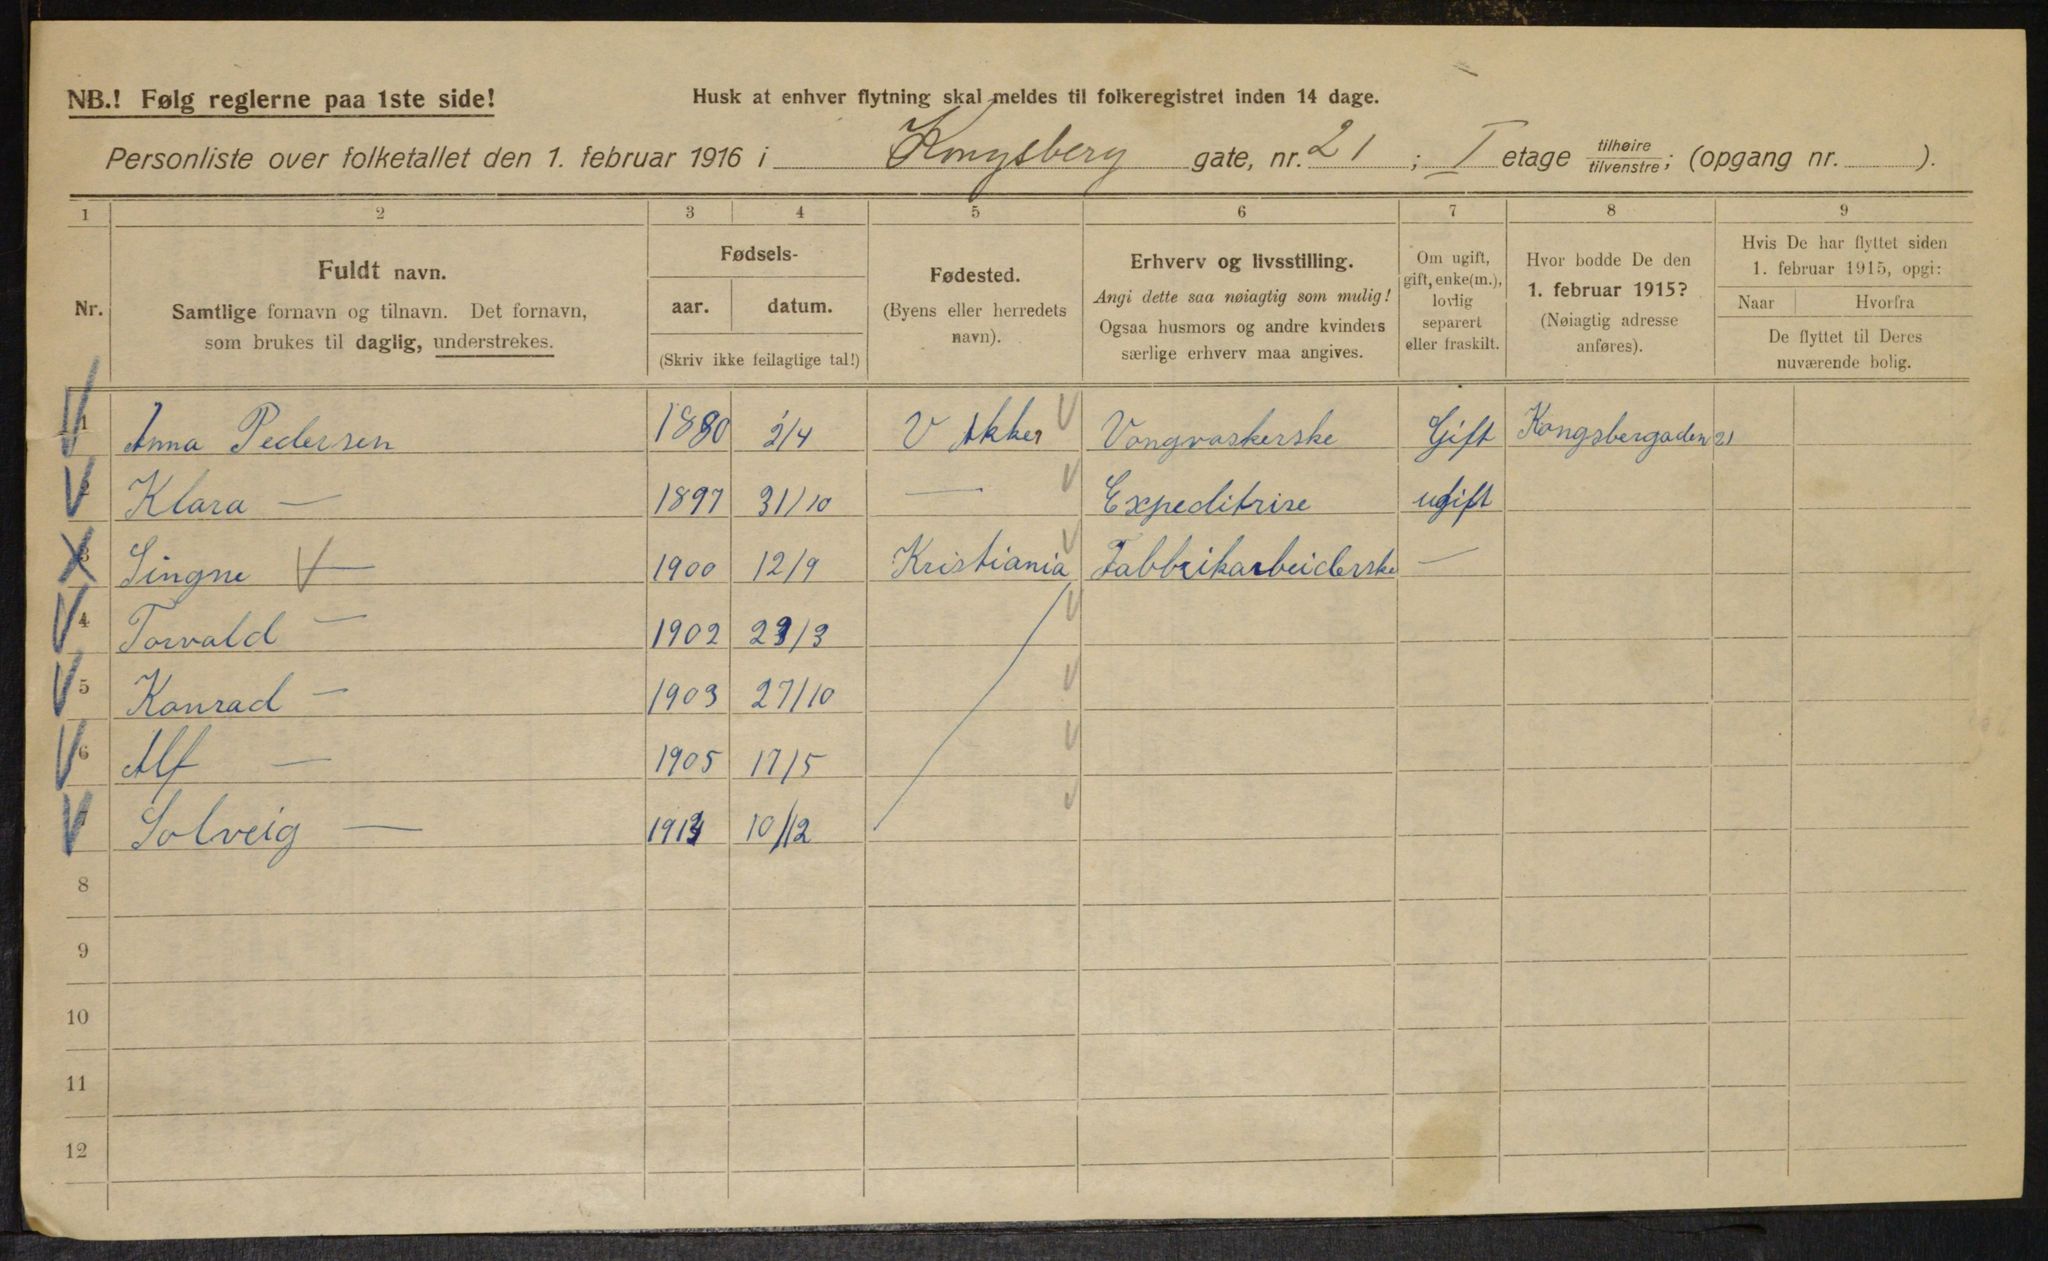 NB.! Følg reglerne paa 1ste side!
Husk at enhver flytning skal meldes til folkeregistret inden 14 dage.
Personliste over folketallet den 1. februar 1916 i Kongsberg gate, nr. 21 ; I etage tilhøire/tilvenstre; (opgang nr. ).
1 2 3 4 5 6 7 8 9
Nr.
Fuldt navn.
Samtlige fornavn og tilnavn. Det fornavn,
som brukes til daglig, understrekes.
Fødsels-
aar. datum.
(Skriv ikke feilagtige tal!)
Fødested.
(Byens eller herredets
navn).
Erhverv og livsstilling.
Angi dette saa nøiagtig som mulig!
Ogsaa husmors og andre kvinders
særlige erhverv maa angives.
Om ugift,
gift, enke(m.),
lovlig
separert
eller fraskilt.
Hvor bodde De den
1. februar 1915?
(Nøiagtig adresse
anføres).
Hvis De har flyttet siden
1. februar 1915, opgi:
Naar Hvorfra
De flyttet til Deres
nuværende bolig.
1 Anna Pedersen 1880 2/4 V Akker Vongvaskerske Gift Kongsbergaden 21
Klara — 1897 31/10 — Expeditrise ugift
3 Singne — 1900 12/9 Kristiania Fabbrikarbeiderske —
4 Torvald — 1902 /3
5 Konrad — 1903 27/10
6 Alf — 1905 17/5
Solveig — 10/12
8
9
10
11
12